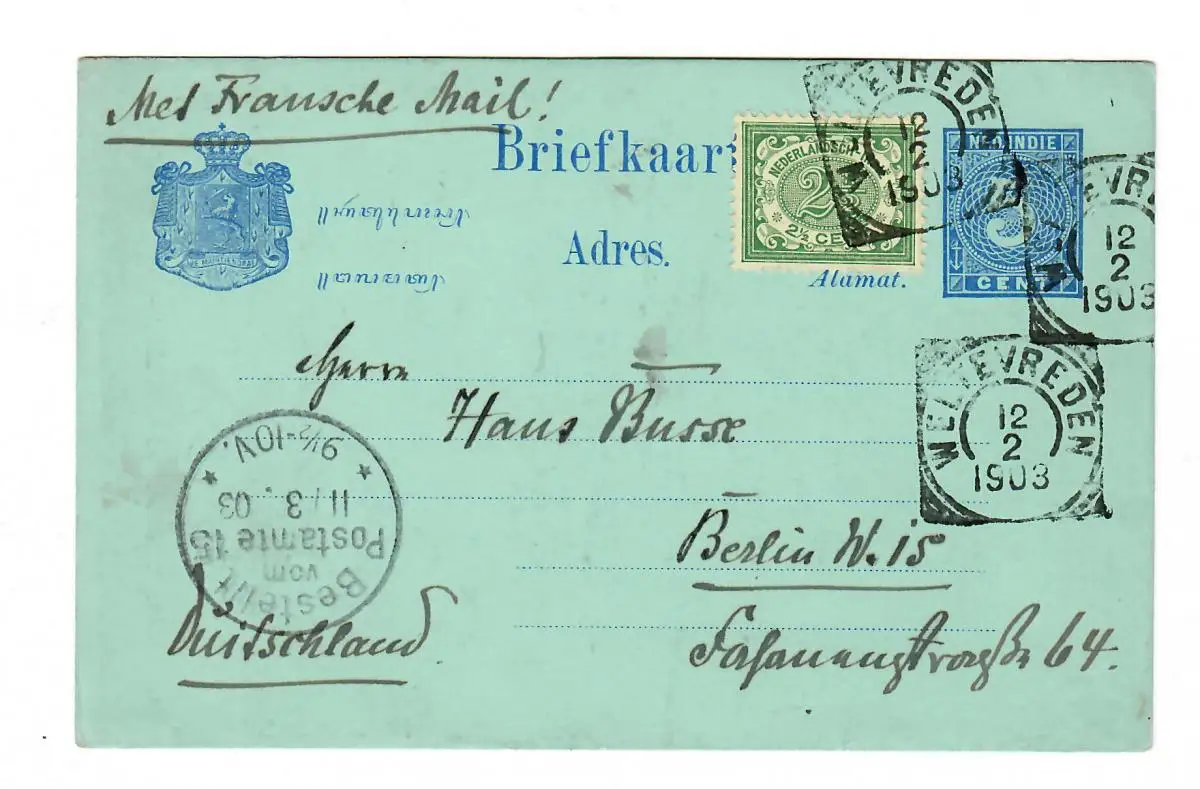 Met Fransche Mail!
Briefkaart
Adres.
Alamat.
NEDERLANDSCH
2½
2½ CENT
NED. INDIE
CENT
WELTEVREDEN
12
2
1903
WELTEVREDEN
12
2
1903
WELTEVREDEN
12
2
1903
JE MAINTIENDRAI
Herrn
Hans Busse
Berlin W. 15
Fasanenstraße 64.
Deutschland.
Bestellt
vom
Postamte 15
11/3. 03
9½-10V.